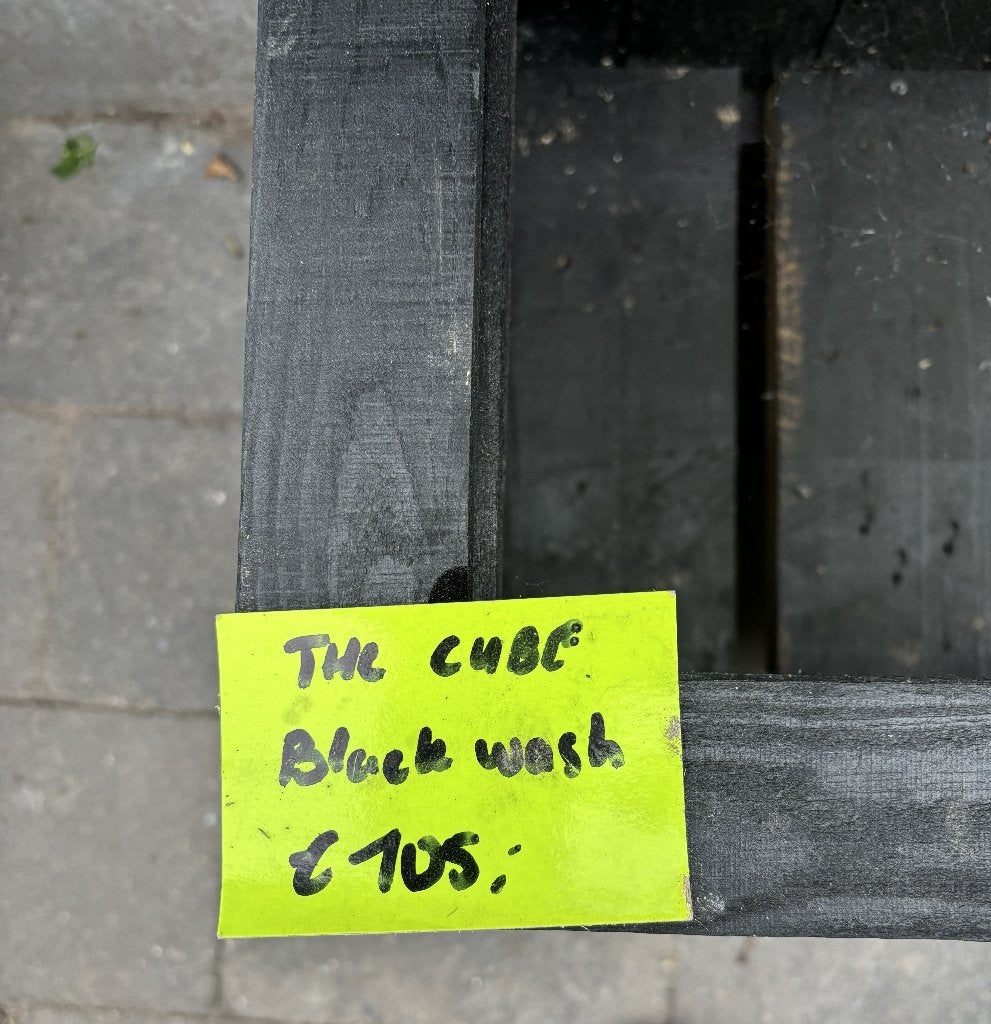 THE CUBE
Black wash
€ 105,-